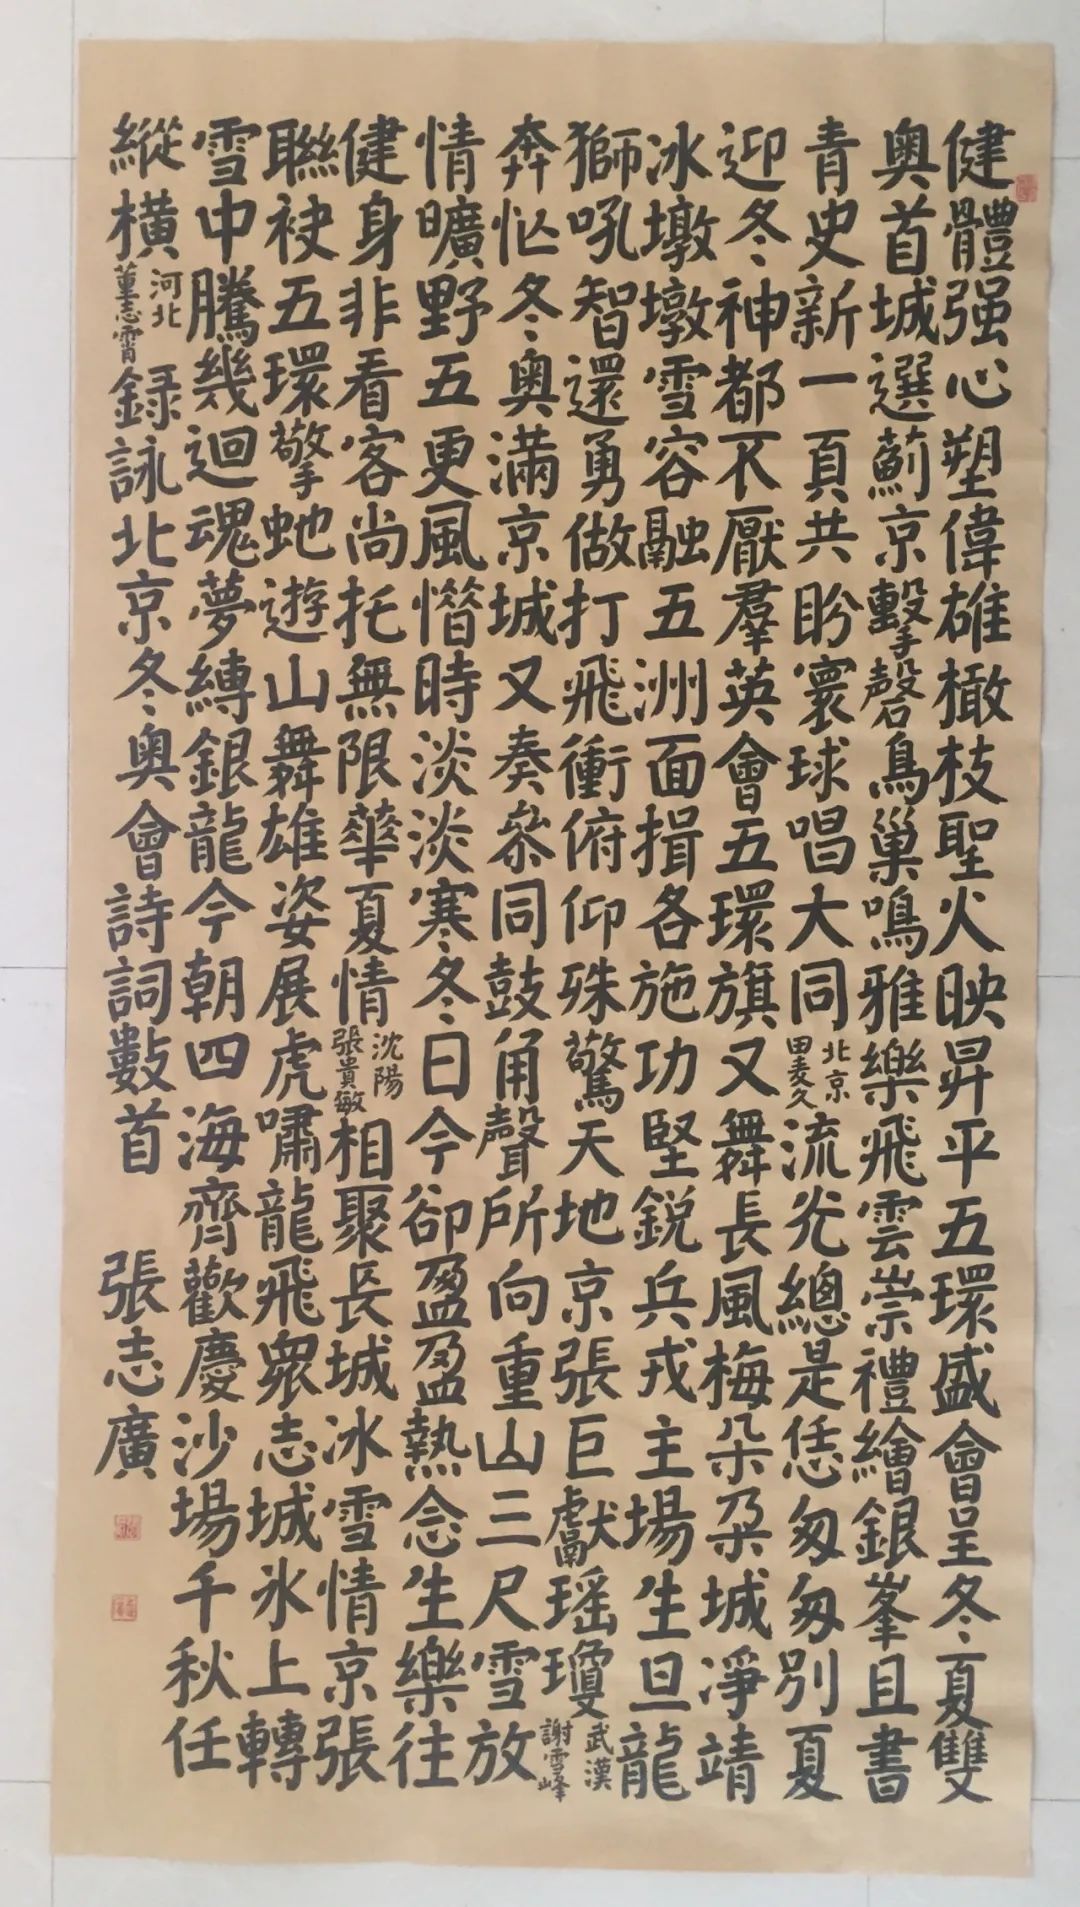 健體强心塑偉雄橄枝聖火映昇平五環盛會呈冬夏雙
奥首城選薊京擊磬鳥巢鳴雅樂飛雲崇禮繪銀峯且書
青史新一頁共盼寰球唱大同北京田麦久流光總是恁匆匆別夏
迎冬神都不厭羣英會五環旗又舞長風梅朵朵城淨靖
冰墩墩雪容融五洲面揖各施功堅銳兵戎主場生旦龍
獅吼智還勇做打飛衝俯仰殊驚天地京張巨獻瑶瓊武漢謝雪峰
奔忙冬奥滿京城又奏叅同鼓角聲所向重山三尺雪放
情曠野五更風惜時淡淡寒冬日今卻盈盈熱念生樂往
健身非看客尚托無限華夏情沈陽張貴敏相聚長城冰雪情京張
聯袂五環擎虵遊山舞雄姿展虎嘯龍飛衆志城氷上轉
雪中騰幾迴魂夢縛銀龍今朝四海齊歡慶沙場千秋任
縱橫河北董志霄録詠北京冬奥會詩詞數首 張志廣